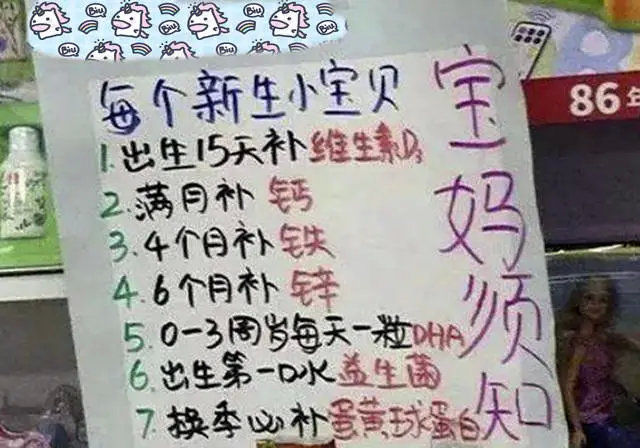 Biu
Biu
Biu
Biu
Biu
Biu
每个新生小宝贝
1.出生15天补维生素D3
2.满月补钙
3.4个月补铁
4.6个月补锌
5.0-3周岁每天一粒DHA
6.出生第一口水益生菌
7.换季必补蛋黄球蛋白
宝妈须知
86年